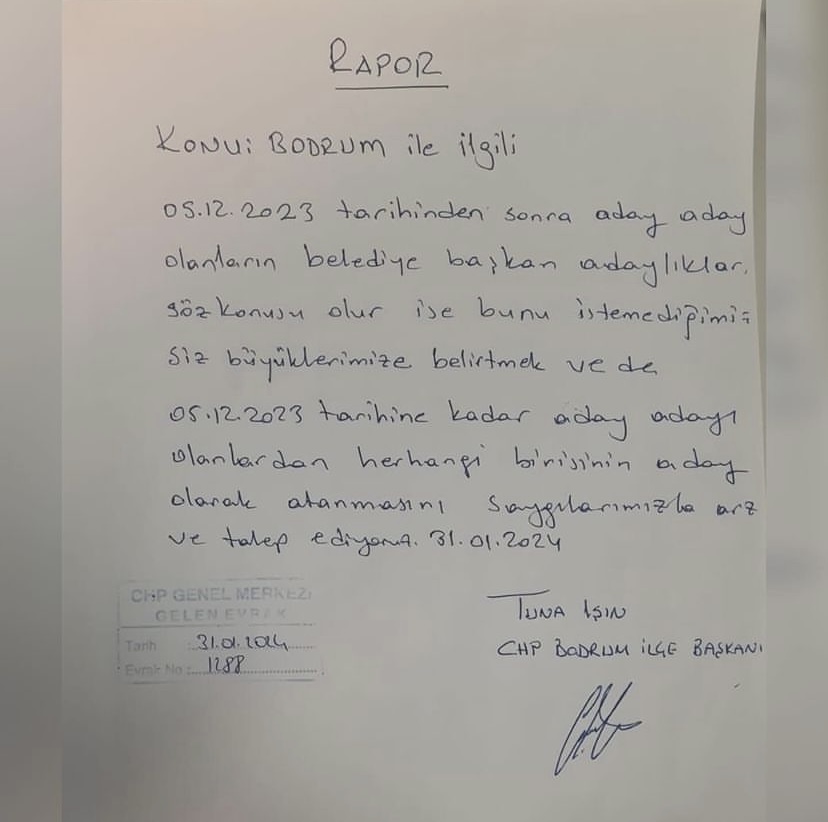 RAPOR
KONU: BODRUM ile ilgili
05.12.2023 tarihinden sonra aday aday
olanların belediye başkan adaylıklar
sözkonusu olur ise bunu istemediğimiz
siz büyüklerimize belirtmek ve de
05.12.2023 tarihine kadar aday adayı
olanlardan herhangi birisinin aday
olarak atanmasını saygılarımızla arz
ve talep ediyoruz. 31.01.2024
TUNA IŞIN
CHP BODRUM İLÇE BAŞKANI
CHP GENEL MERKEZİ
GELEN EVRAK
Tarih : 31.01.2024
Evrak No : 1288